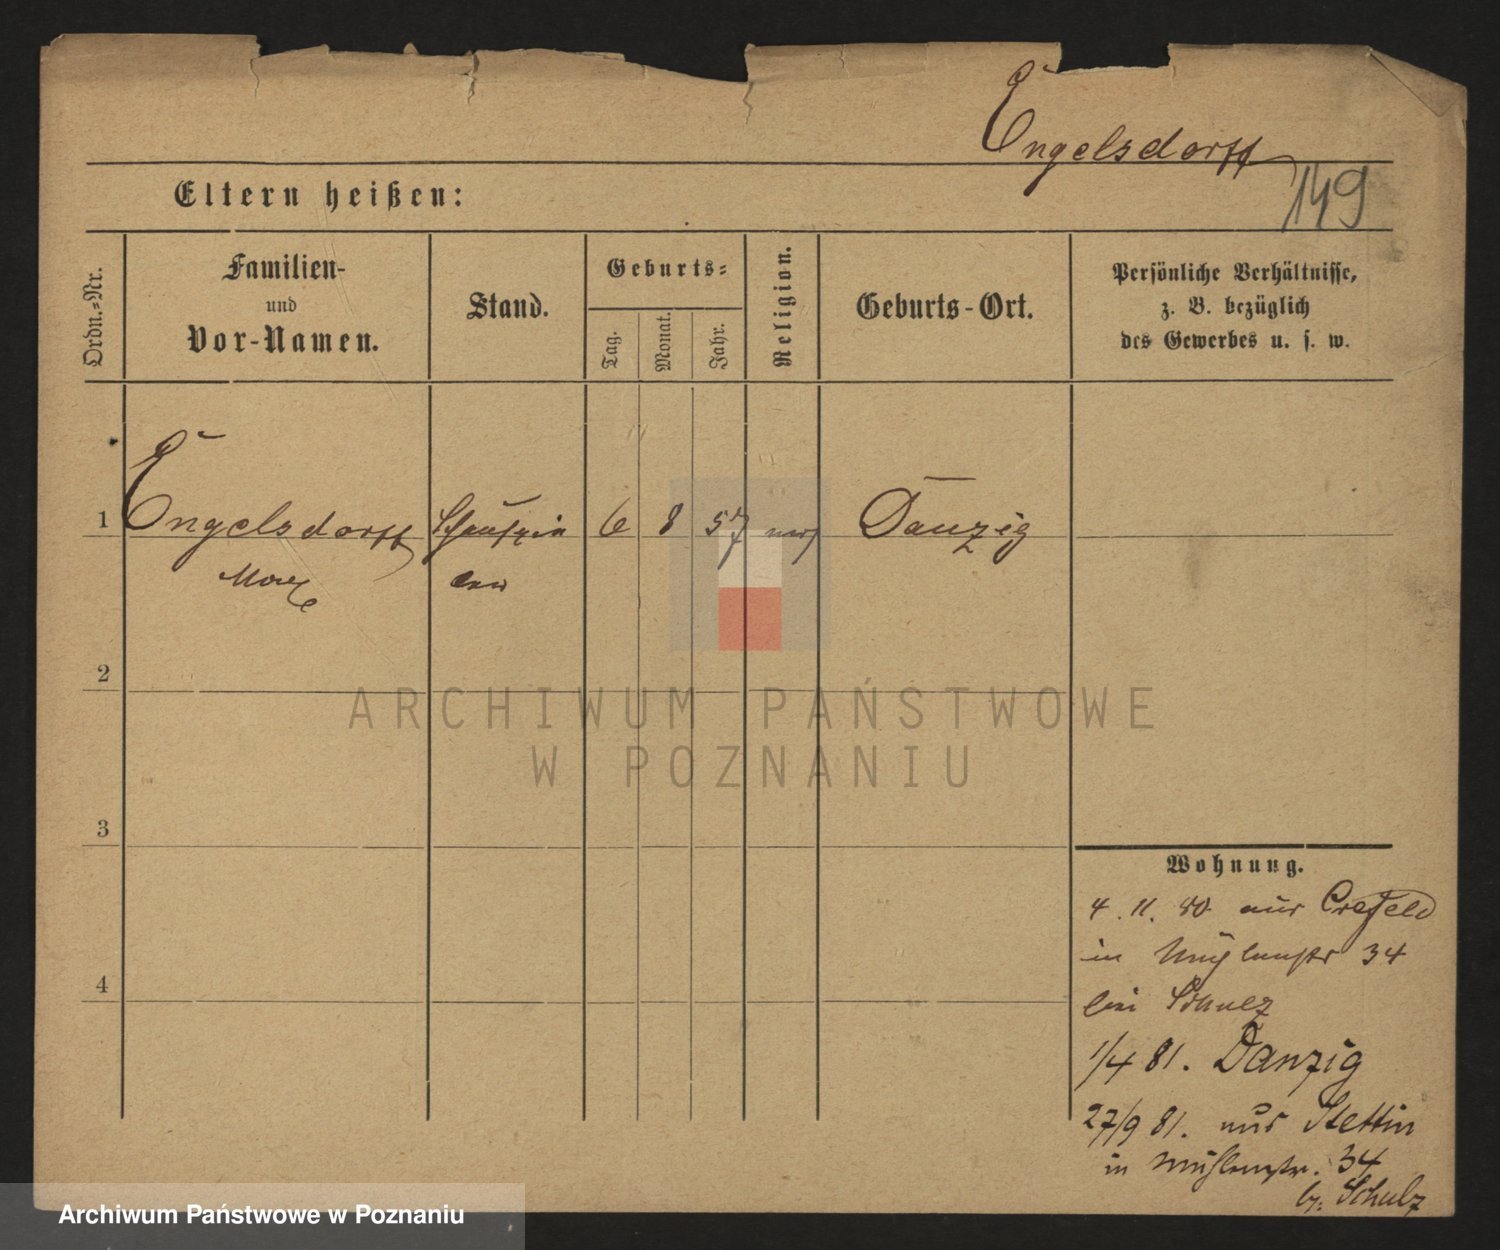 Engelsdorff
149
Eltern heißen:
Ordn.-Nr.
Familien-
und
Vor-Namen.
Stand.
Geburts-
Tag.
Monat.
Jahr.
Religion.
Geburts-Ort.
Persönliche Verhältnisse,
z. B. bezüglich
des Gewerbes u. s. w.
1 Engelsdorff Schauspie 6 8 57 Danzig
Max ler
2
3
4
Wohnung.
4. 11. 80 aus Crefeld
in Mühlenstr 34
bei Schulz
1/4 81. Danzig
27/9 81. aus Stettin
in Mühlenstr. 34
b. Schulz
ARCHIWUM PAŃSTWOWE
W POZNANIU
Archiwum Państwowe w Poznaniu